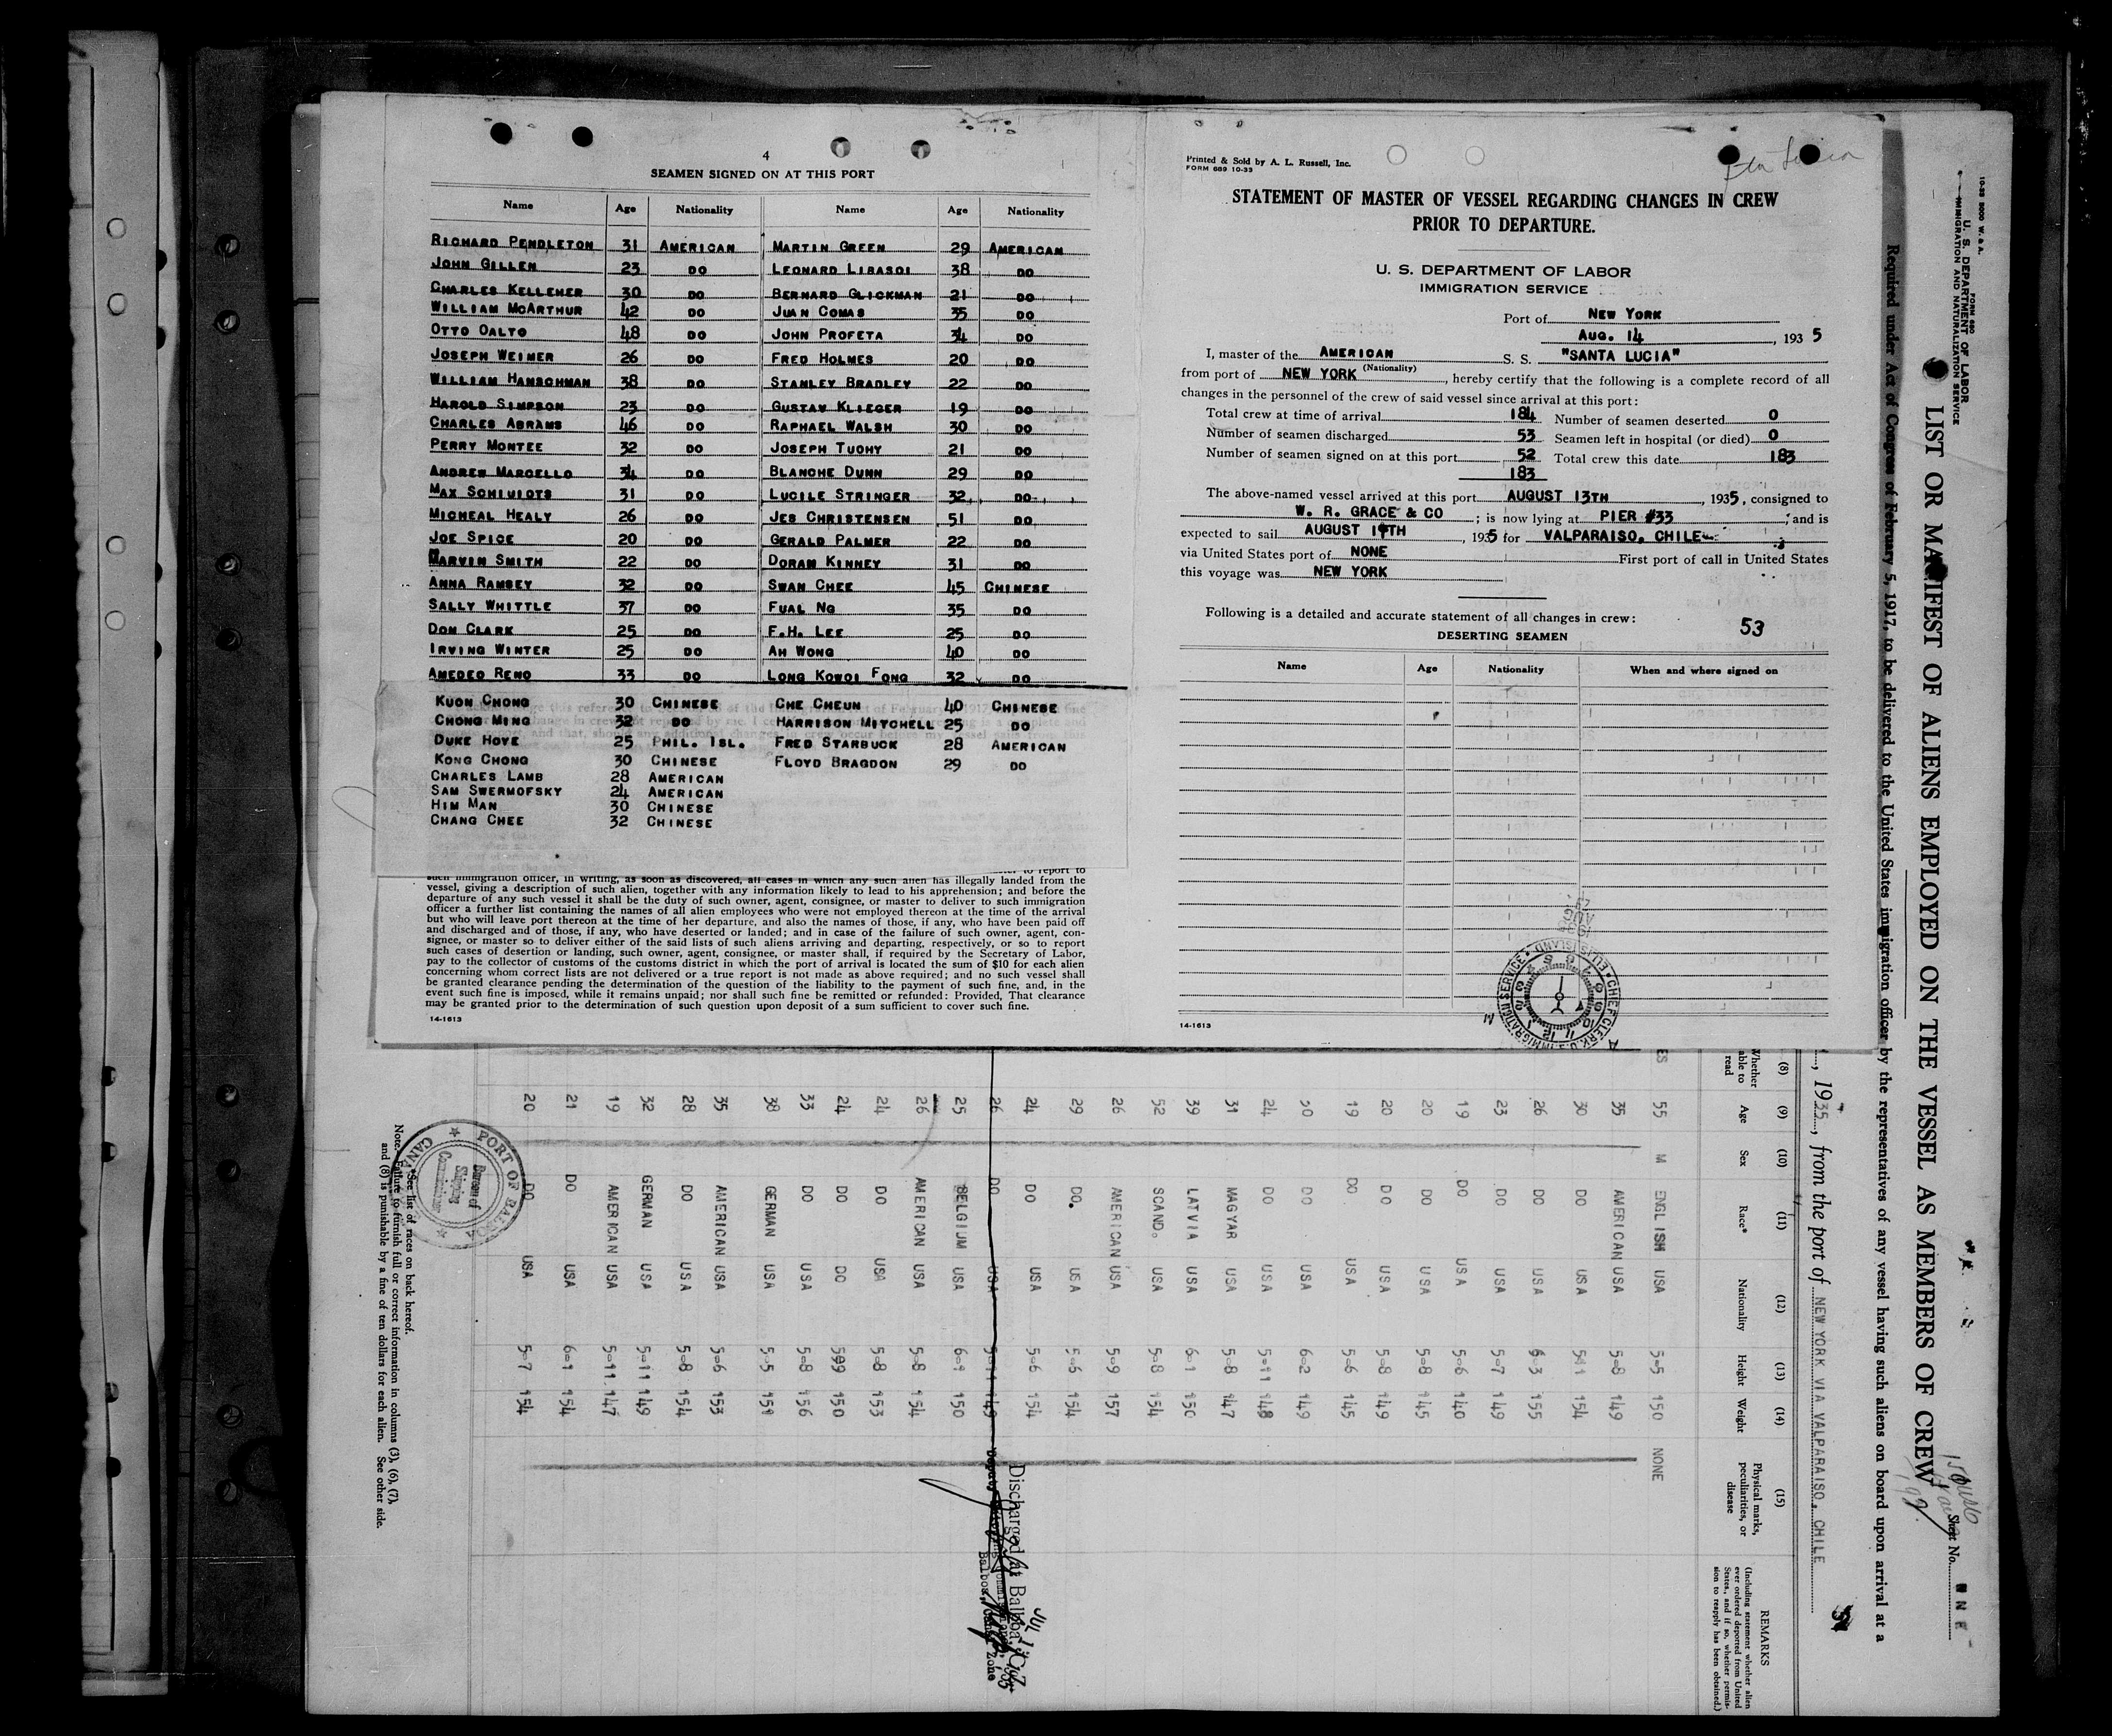 4
SEAMEN SIGNED ON AT THIS PORT
Name Age Nationality Name Age Nationality
RICHARD PENDLETON 31 AMERICAN MARTIN GREEN 29 AMERICAN
JOHN GILLEN 23 DO LEONARD LIBASOI 38 DO
CHARLES KELLEHER 30 DO BERNARD GLICKMAN 21 DO
WILLIAM MCARTHUR 42 DO JUAN COMAS 35 DO
OTTO OALTO 48 DO JOHN PROFETA 34 DO
JOSEPH WEIMER 26 DO FRED HOLMES 20 DO
WILLIAM HANSCHMAN 38 DO STANLEY BRADLEY 22 DO
HAROLD SIMPSON 23 DO GUSTAV KLIEGER 19 DO
CHARLES ABRAMS 46 DO RAPHAEL WALSH 30 DO
PERRY MONTEE 32 DO JOSEPH TUOHY 21 DO
ANDREW MARCELLO 34 DO BLANCHE DUNN 29 DO
MAX 31 DO LUCILE STRINGER 32 DO
MICHEAL HEALY 26 DO JES CHRISTENSEN 51 DO
JOE SPICE 20 DO GERALD PALMER 22 DO
MARVIN SMITH 22 DO DORAN KINNEY 31 DO
ANNA RAMSEY 32 DO SWAN CHEE 45 CHINESE
SALLY WHITTLE 37 DO FUAL NG 35 DO
DON CLARK 25 DO F.H. LEE 25 DO
IRVING WINTER 25 DO AH WONG 40 DO
AMEDEO RENO 33 DO LONG KOWOI FONG 32 DO
KUON CHONG 30 CHINESE CHE CHEUN 40 CHINESE
CHONG MING 32 DO HARRISON MITCHELL 25 DO
DUKE HOYE 25 PHIL. ISL. FRED STARBUCK 28 AMERICAN
KONG CHONG 30 CHINESE FLOYD BRAGDON 29 DO
CHARLES LAMB 28 AMERICAN
SAM SWERMOFSKY 24 AMERICAN
HIM MAN 30 CHINESE
CHANG CHEE 32 CHINESE
to report to
such immigration officer, in writing, as soon as discovered, all cases in which any such alien has illegally landed from the
vessel, giving a description of such alien, together with any information likely to lead to his apprehension; and before the
departure of any such vessel it shall be the duty of such owner, agent, consignee, or master to deliver to such immigration
officer a further list containing the names of all alien employees who were not employed thereon at the time of the arrival
but who will leave port thereon at the time of her departure, and also the names of those, if any, who have been paid off
and discharged and of those, if any, who have deserted or landed; and in case of the failure of such owner, agent, con-
signee, or master so to deliver either of the said lists of such aliens arriving and departing, respectively, or so to report
such cases of desertion or landing, such owner, agent, consignee, or master shall, if required by the Secretary of Labor,
pay to the collector of customs of the customs district in which the port of arrival is located the sum of $10 for each alien
concerning whom correct lists are not delivered or a true report is not made as above required; and no such vessel shall
be granted clearance pending the determination of the question of the liability to the payment of such fine, and, in the
event such fine is imposed, while it remains unpaid; nor shall such fine be remitted or refunded: Provided, That clearance
may be granted prior to the determination of such question upon deposit of a sum sufficient to cover such fine.
14-1613
Printed & Sold by A. L. Russell, Inc.
FORM 689 10-33
STATEMENT OF MASTER OF VESSEL REGARDING CHANGES IN CREW
PRIOR TO DEPARTURE.
U. S. DEPARTMENT OF LABOR
IMMIGRATION SERVICE
Port of NEW YORK
AUG. 14, 1935
I, master of the AMERICAN S. S. "SANTA LUCIA"
(Nationality)
from port of NEW YORK, hereby certify that the following is a complete record of all
changes in the personnel of the crew of said vessel since arrival at this port:
Total crew at time of arrival 184 Number of seamen deserted 0
Number of seamen discharged 53 Seamen left in hospital (or died) 0
Number of seamen signed on at this port 52 Total crew this date 183
183
The above-named vessel arrived at this port AUGUST 13TH, 1935, consigned to
W. R. GRACE & CO; is now lying at PIER #33; and is
expected to sail AUGUST 14TH, 1935 for VALPARAISO, CHILE
via United States port of NONE First port of call in United States
this voyage was NEW YORK
Following is a detailed and accurate statement of all changes in crew: 53
DESERTING SEAMEN
Name Age Nationality When and where signed on
14-1613
10-33 5000 W. & A.
FORM 680
U. S. DEPARTMENT OF LABOR
IMMIGRATION AND NATURALIZATION SERVICE
Sheet No. ONE
LIST OR MANIFEST OF ALIENS EMPLOYED ON THE VESSEL AS MEMBERS OF CREW
Required under Act of Congress of February 5, 1917, to be delivered to the United States immigration officer by the representatives of any vessel having such aliens on board upon arrival at a
, 1935, from the port of NEW YORK VIA VALPARAISO, CHILE
(8) (9) (10) (11) (12) (13) (14) (15)
Whether able to read Age Sex Race* Nationality Height Weight Physical marks, peculiarities, or disease REMARKS
(Including statement whether alien ever ordered deported from United States, and if so, whether permission to reapply has been obtained.)
ES 55 M ENGLISH USA 5-5 150 NONE
35 AMERICAN USA 5-8 149
30 DO USA 5-11 154
26 DO USA 6-3 155
23 DO USA 5-7 149
19 DO USA 5-6 140
20 DO USA 5-8 145
20 DO USA 5-8 149
19 DO USA 5-6 145
30 DO USA 6-2 149
24 DO USA 5-11 148
31 MAGYAR USA 5-8 147
39 LATVIA USA 6-1 150
52 SCAND. USA 5-8 154
26 AMERICAN USA 5-9 157
29 DO. USA 5-6 154
24 DO USA 5-6 154
26 DO USA 5-11 149
25 BELGIUM USA 6-1 150
26 AMERICAN USA 5-8 154
24 DO USA 5-8 153
24 DO DO 5-9 150
33 DO USA 5-8 156
38 GERMAN USA 5-5 151
35 AMERICAN USA 5-6 153
28 DO USA 5-8 154
32 GERMAN USA 5-11 149
19 AMERICAN USA 5-11 147
21 DO USA 6-1 154
20 DO USA 5-7 154
Discharged at Balboa, C. Z.
*See list of races on back hereof.
Note.—Failure to furnish full or correct information in columns (3), (6), (7),
and (8) is punishable by a fine of ten dollars for each alien. See other side.